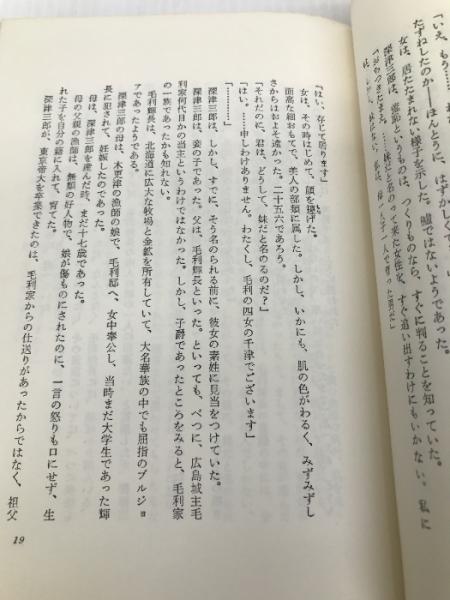 「いえ、もう
たずねしたのか――ほんとうに、はずかしく
女は、居たたまれない様子を示した。嘘ではないようであった。
深津三郎は、虚飾というものは、つくりものなら、すぐに判ることを知っていた。
妹だと名のって来た女性を、すぐ追い出すわけにもいかない。
私に
「はい、存じて居ります」
女は、その時はじめて、顔を擡げた。
面高な細おもてで、美人の部類に属した。しかし、いかにも、肌の色がわるく、みずみずし
さからはおよそ遠かった。二十五六であろう。
「それだのに、君は、どうして、妹だと名のるのだ?」
「はい。……申しわけありません。わたくし、毛利の四女の千津でございます」
「…………」
深津三郎は、しかし、すでに、そう名のられる前に、彼女の素姓に見当をつけていた。
深津三郎は、妾の子であった。父は、毛利輝長といった。といっても、べつに、広島城主毛
利家何代目かの当主というわけではなかった。しかし、子爵であったところをみると、毛利家
の一族であったかも知れない。
毛利輝長は、北海道に広大な牧場と金鉱を所有していて、大名華族の中でも屈指のブルジョ
アであったようである。
深津三郎の母は、木更津の漁師の娘で、毛利邸へ、女中奉公し、当時まだ大学生であった輝
長に犯されて、妊娠したのであった。
母は、深津三郎を産んだ時、まだ十七歳であった。
母の父親の漁師は、無類の好人物で、娘が傷ものにされたのに、一言の怒りも口にせず、生
れた子を自分の籍に入れて、育てた。
深津三郎が、東京帝大を卒業できたのは、毛利家からの仕送りがあったからではなく、祖父
19